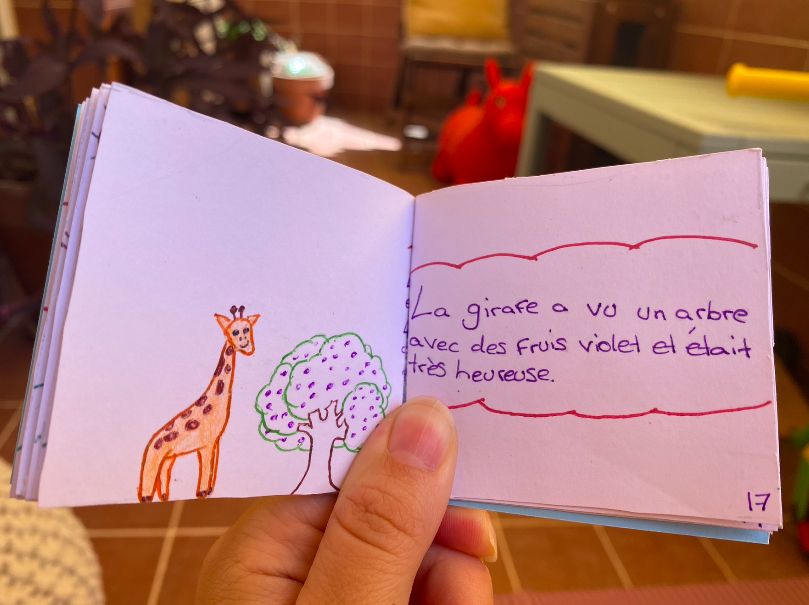 La girafe a vu un arbre
avec des fruis violet et était
très heureuse.
17